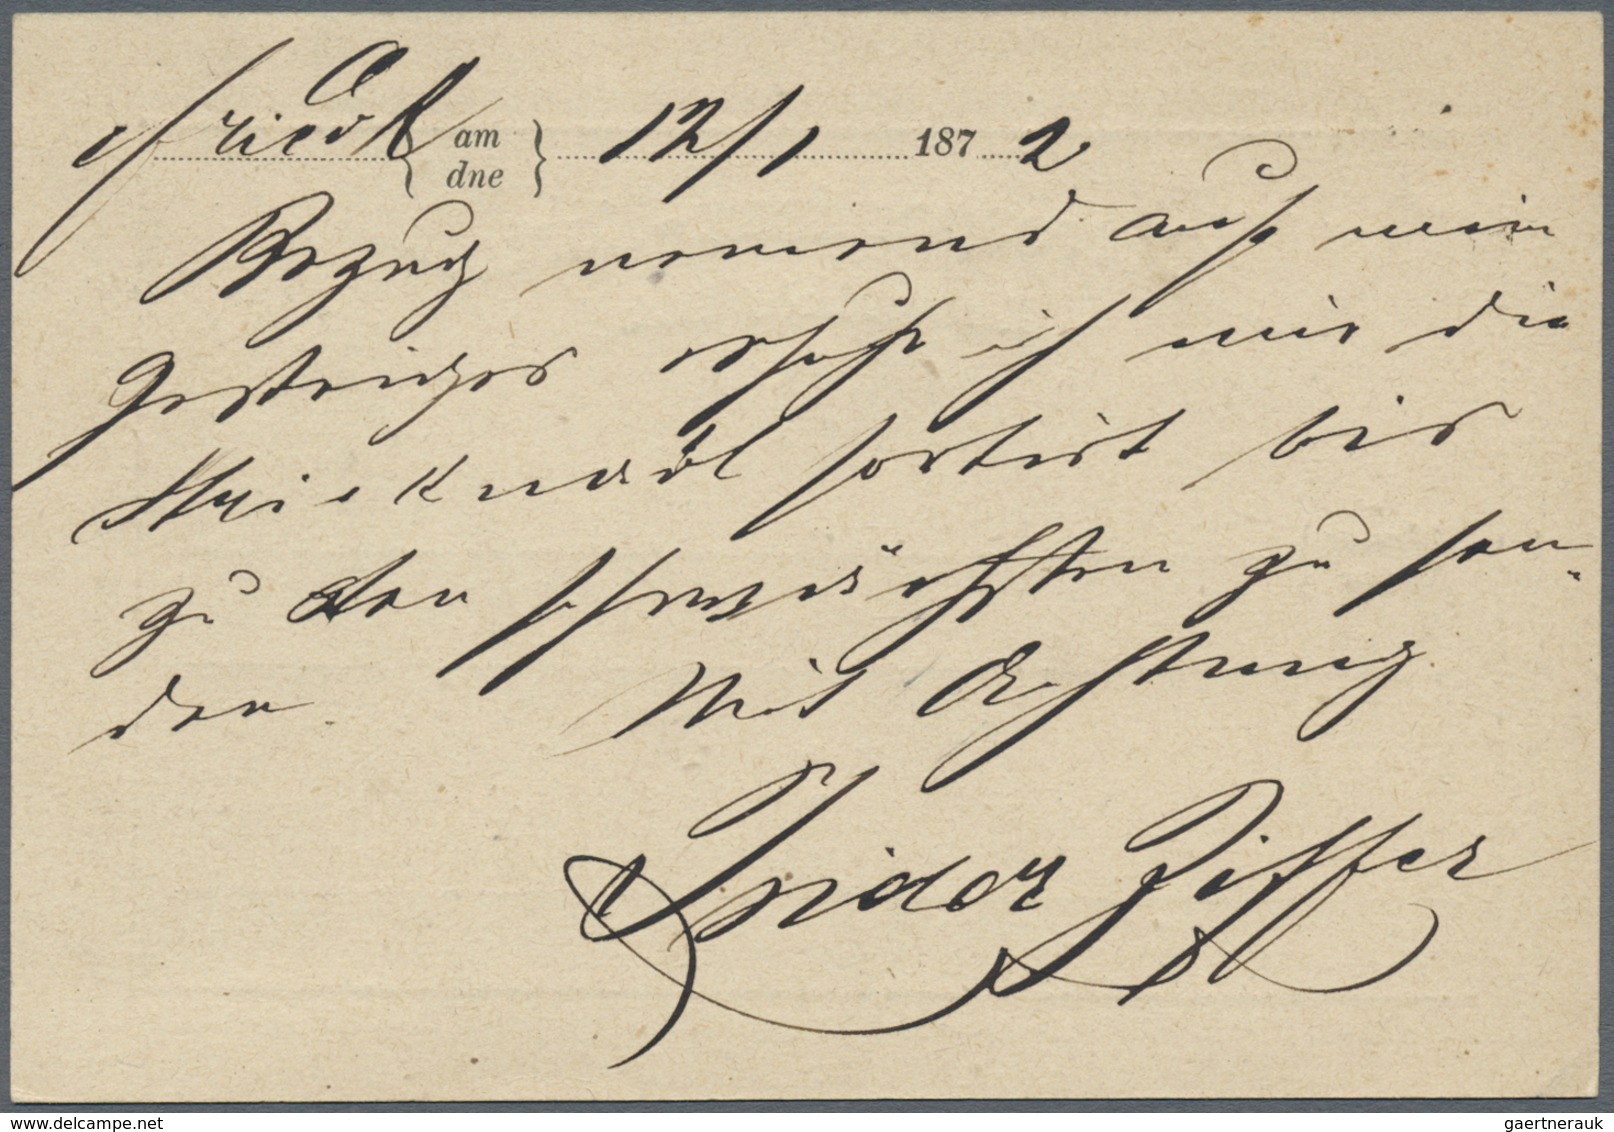 Friedek am dne 12/1 1872
Bezug nemend auf mein
Gestriges ersuche ich mir die
Stricknadl sortirt bis
zu den schwächsten zu sen-
den. Mit Achtung
Isidor Ziffer
gaertnerauk